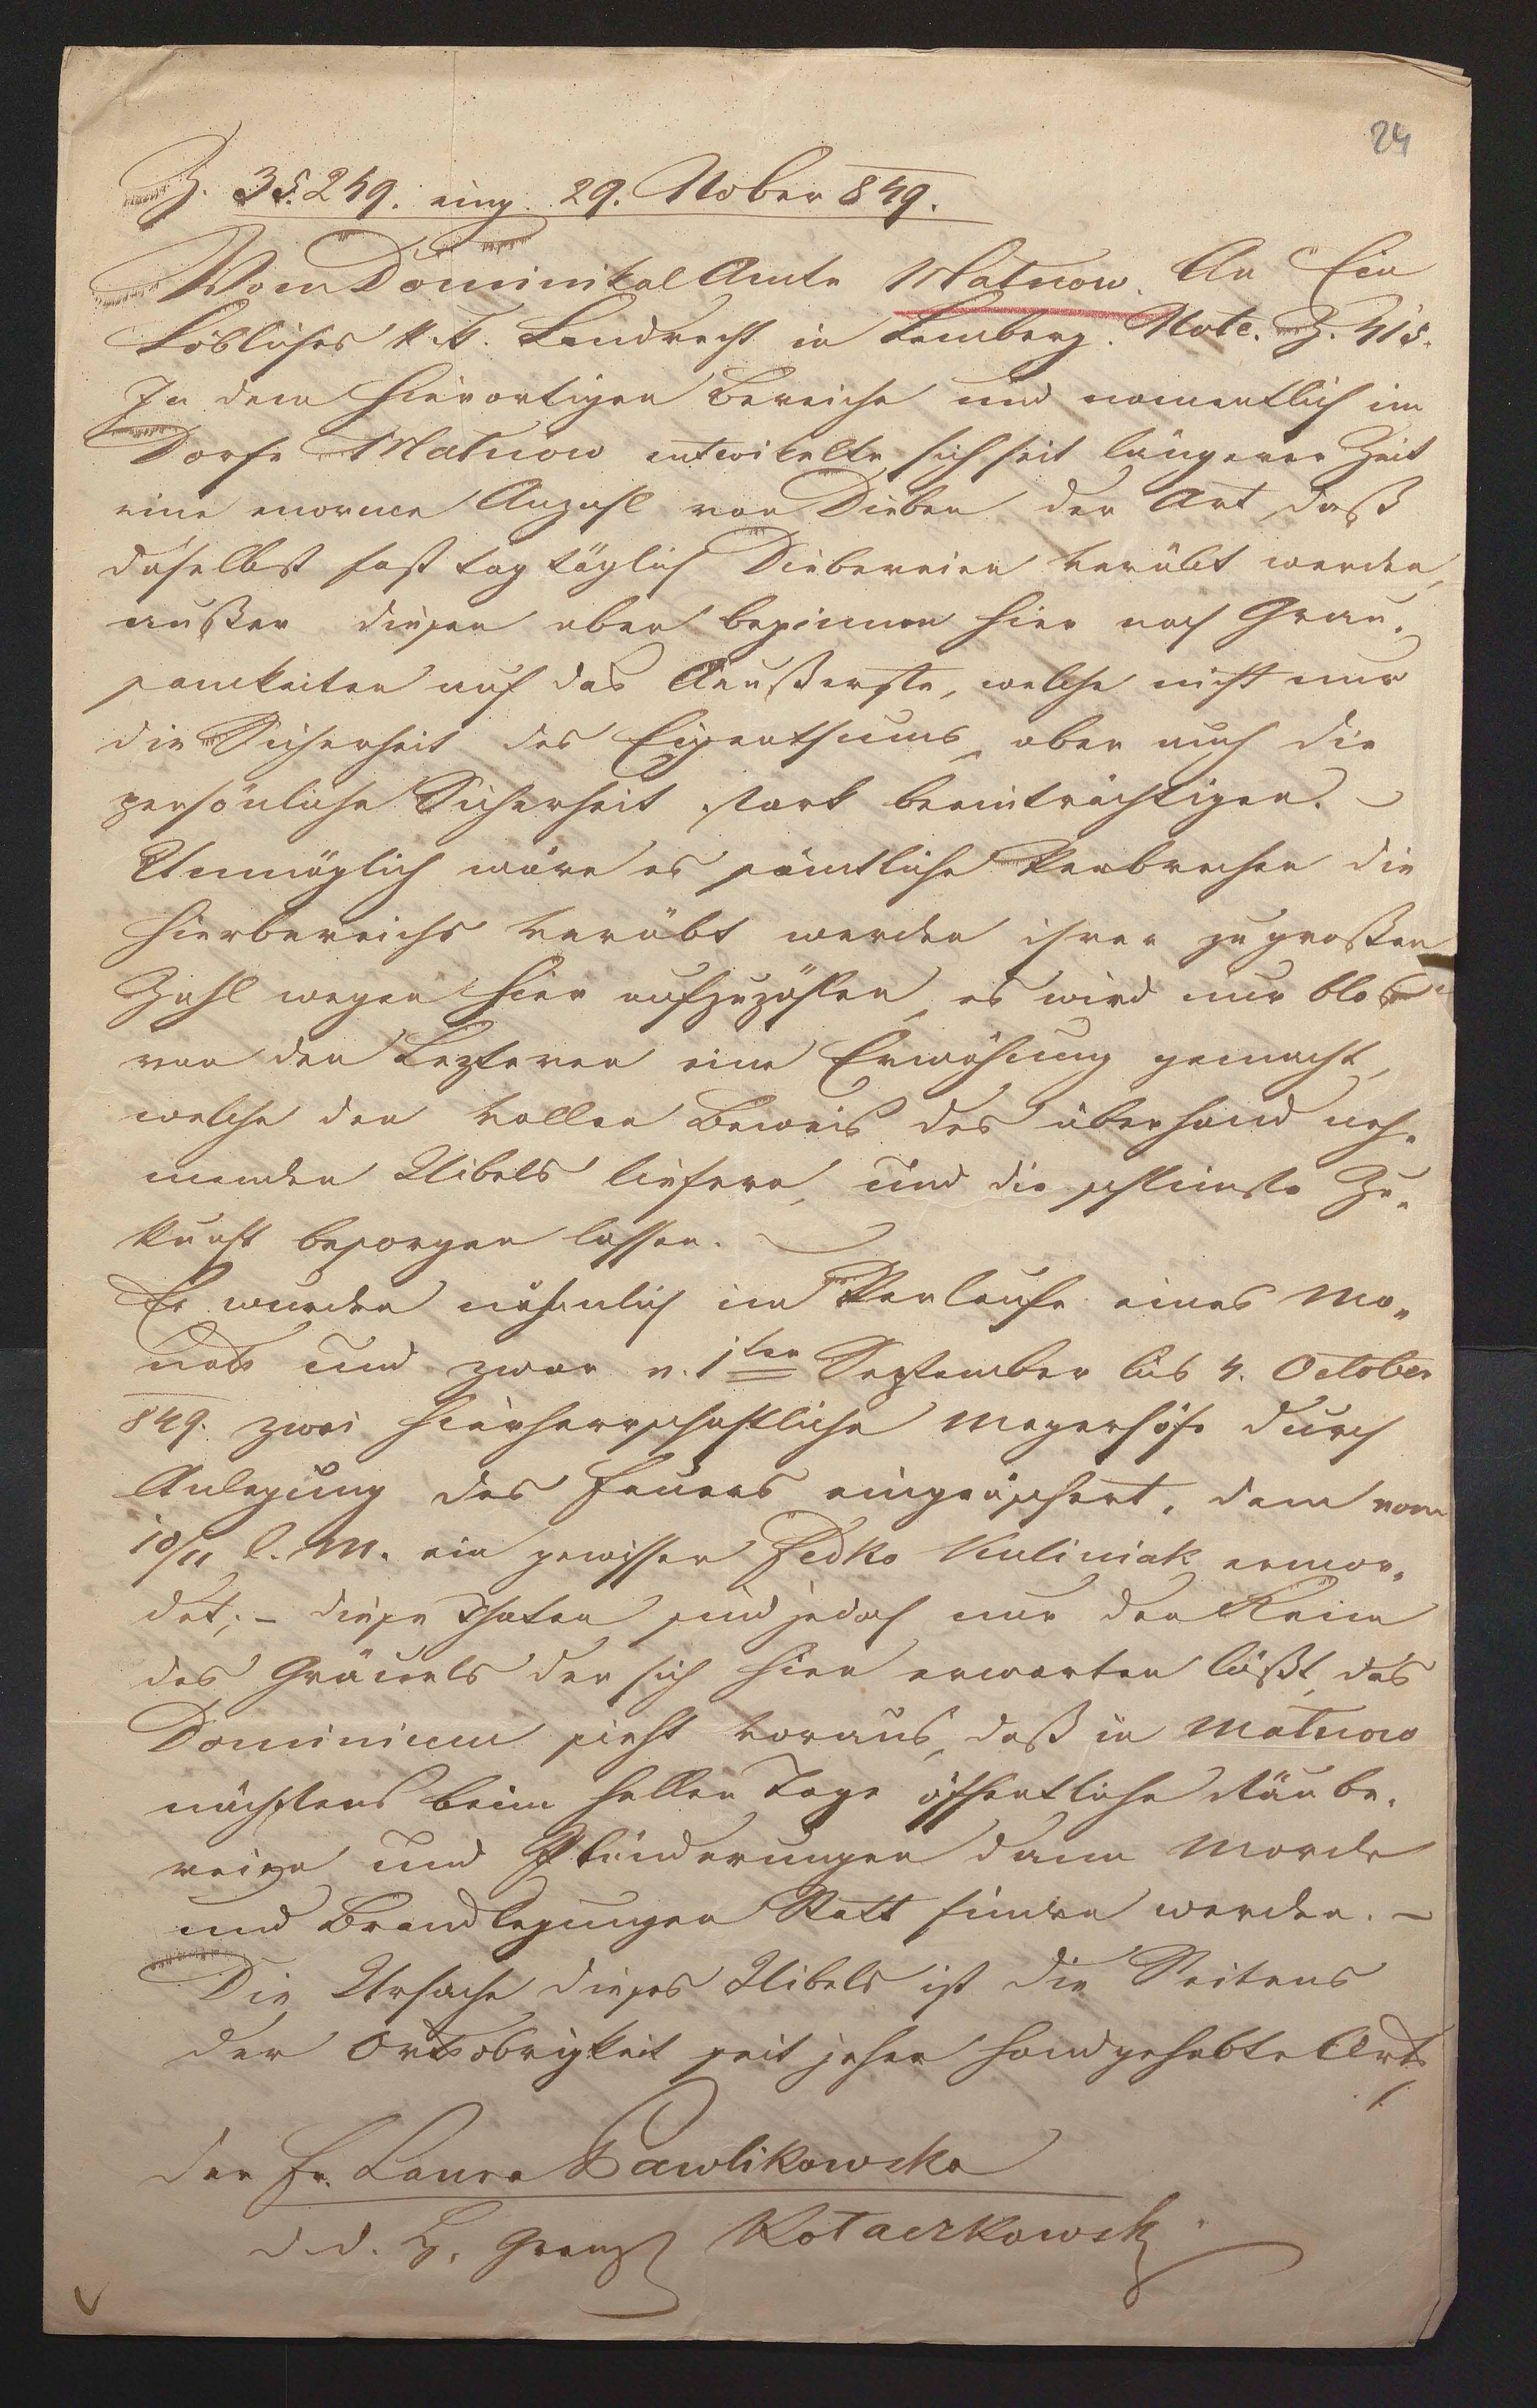 24
Z. 35.249. eing. 29. 9ober 849.
Vom Dominikal Amte Matnow. An Ein
Löbliches k. k. Landrecht in Lemberg. Note. Z. 415.
In dem hierortigen Bereiche und namentlich im
Dorfe Matnow entwikelte sich seit längerer Zeit
eine enorme Anzahl von Dieben der Art, daß
daselbst fast tagtäglich Diebereien verübt werden,
außer diesen aber beginnen hier noch Grau-
samkeiten auf das Aeußerste, welche nicht nur
die Sicherheit des Eigenthums, aber auch die
persönliche Sicherheit stark beeinträchtigen. –
Unmöglich wäre es sämtliche Verbrechen die
hierbereichs verübt werden ihrer zu großen
Zahl wegen hier aufzuzählen, es wird nur blos
von den Lezteren eine Erwähnung gemacht,
welche den vollen Beweis des überhand neh-
menden Uibels liefern, und die schlimste Zu-
kunft besorgen lassen. –
Es wurden nähmlich im Verlaufe eines Mo-
nats und zwar v. 1ten September bis 4. October
849. zwei hierherrschaftliche Mayerhöfe durch
Anlegung des Feuers eingeäschert, dann vom
10/11 l. M. ein gewisser Fedko Kuliniak ermor-
det; – diese Thaten sind jedoch nur der Keim
des Gräuels der sich hier erwarten läßt, das
Dominium sieht voraus, daß in Matnow
nächstens beim hellen Tage öffentliche Räube-
reien und Plünderungen dann Morde
und Brandlegungen Statt finden werden. –
Die Ursache dieses Uibels ist die Seitens
der Ortsobrigkeit seit jeher handgehabte Art,
der Fr. Laura Pawlikowska
d. d. H. Kotarkowski